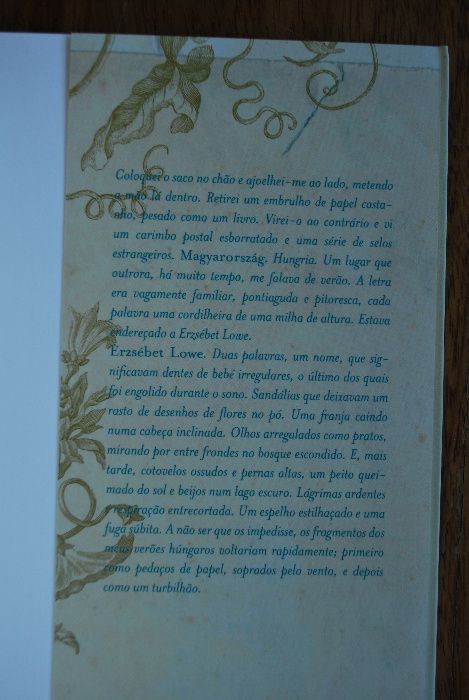 Coloquei o saco no chão e ajoelhei-me ao lado, metendo
a mão lá dentro. Retirei um embrulho de papel casta-
nho, pesado como um livro. Virei-o ao contrário e vi
um carimbo postal esborratado e uma série de selos
estrangeiros. Magyarország. Hungria. Um lugar que
outrora, há muito tempo, me falava de verão. A letra
era vagamente familiar, pontiaguda e pitoresca, cada
palavra uma cordilheira de uma milha de altura. Estava
endereçado a Erzsébet Lowe.
Erzsébet Lowe. Duas palavras, um nome, que sig-
nificavam dentes de bebé irregulares, o último dos quais
foi engolido durante o sono. Sandálias que deixavam um
rasto de desenhos de flores no pó. Uma franja caindo
numa cabeça inclinada. Olhos arregalados como pratos,
mirando por entre frondes no bosque escondido. E, mais
tarde, cotovelos ossudos e pernas altas, um peito quei-
mado do sol e beijos num lago escuro. Lágrimas ardentes
e respiração entrecortada. Um espelho estilhaçado e uma
fuga súbita. A não ser que os impedisse, os fragmentos dos
meus verões húngaros voltariam rapidamente; primeiro
como pedaços de papel, soprados pelo vento, e depois
como um turbilhão.